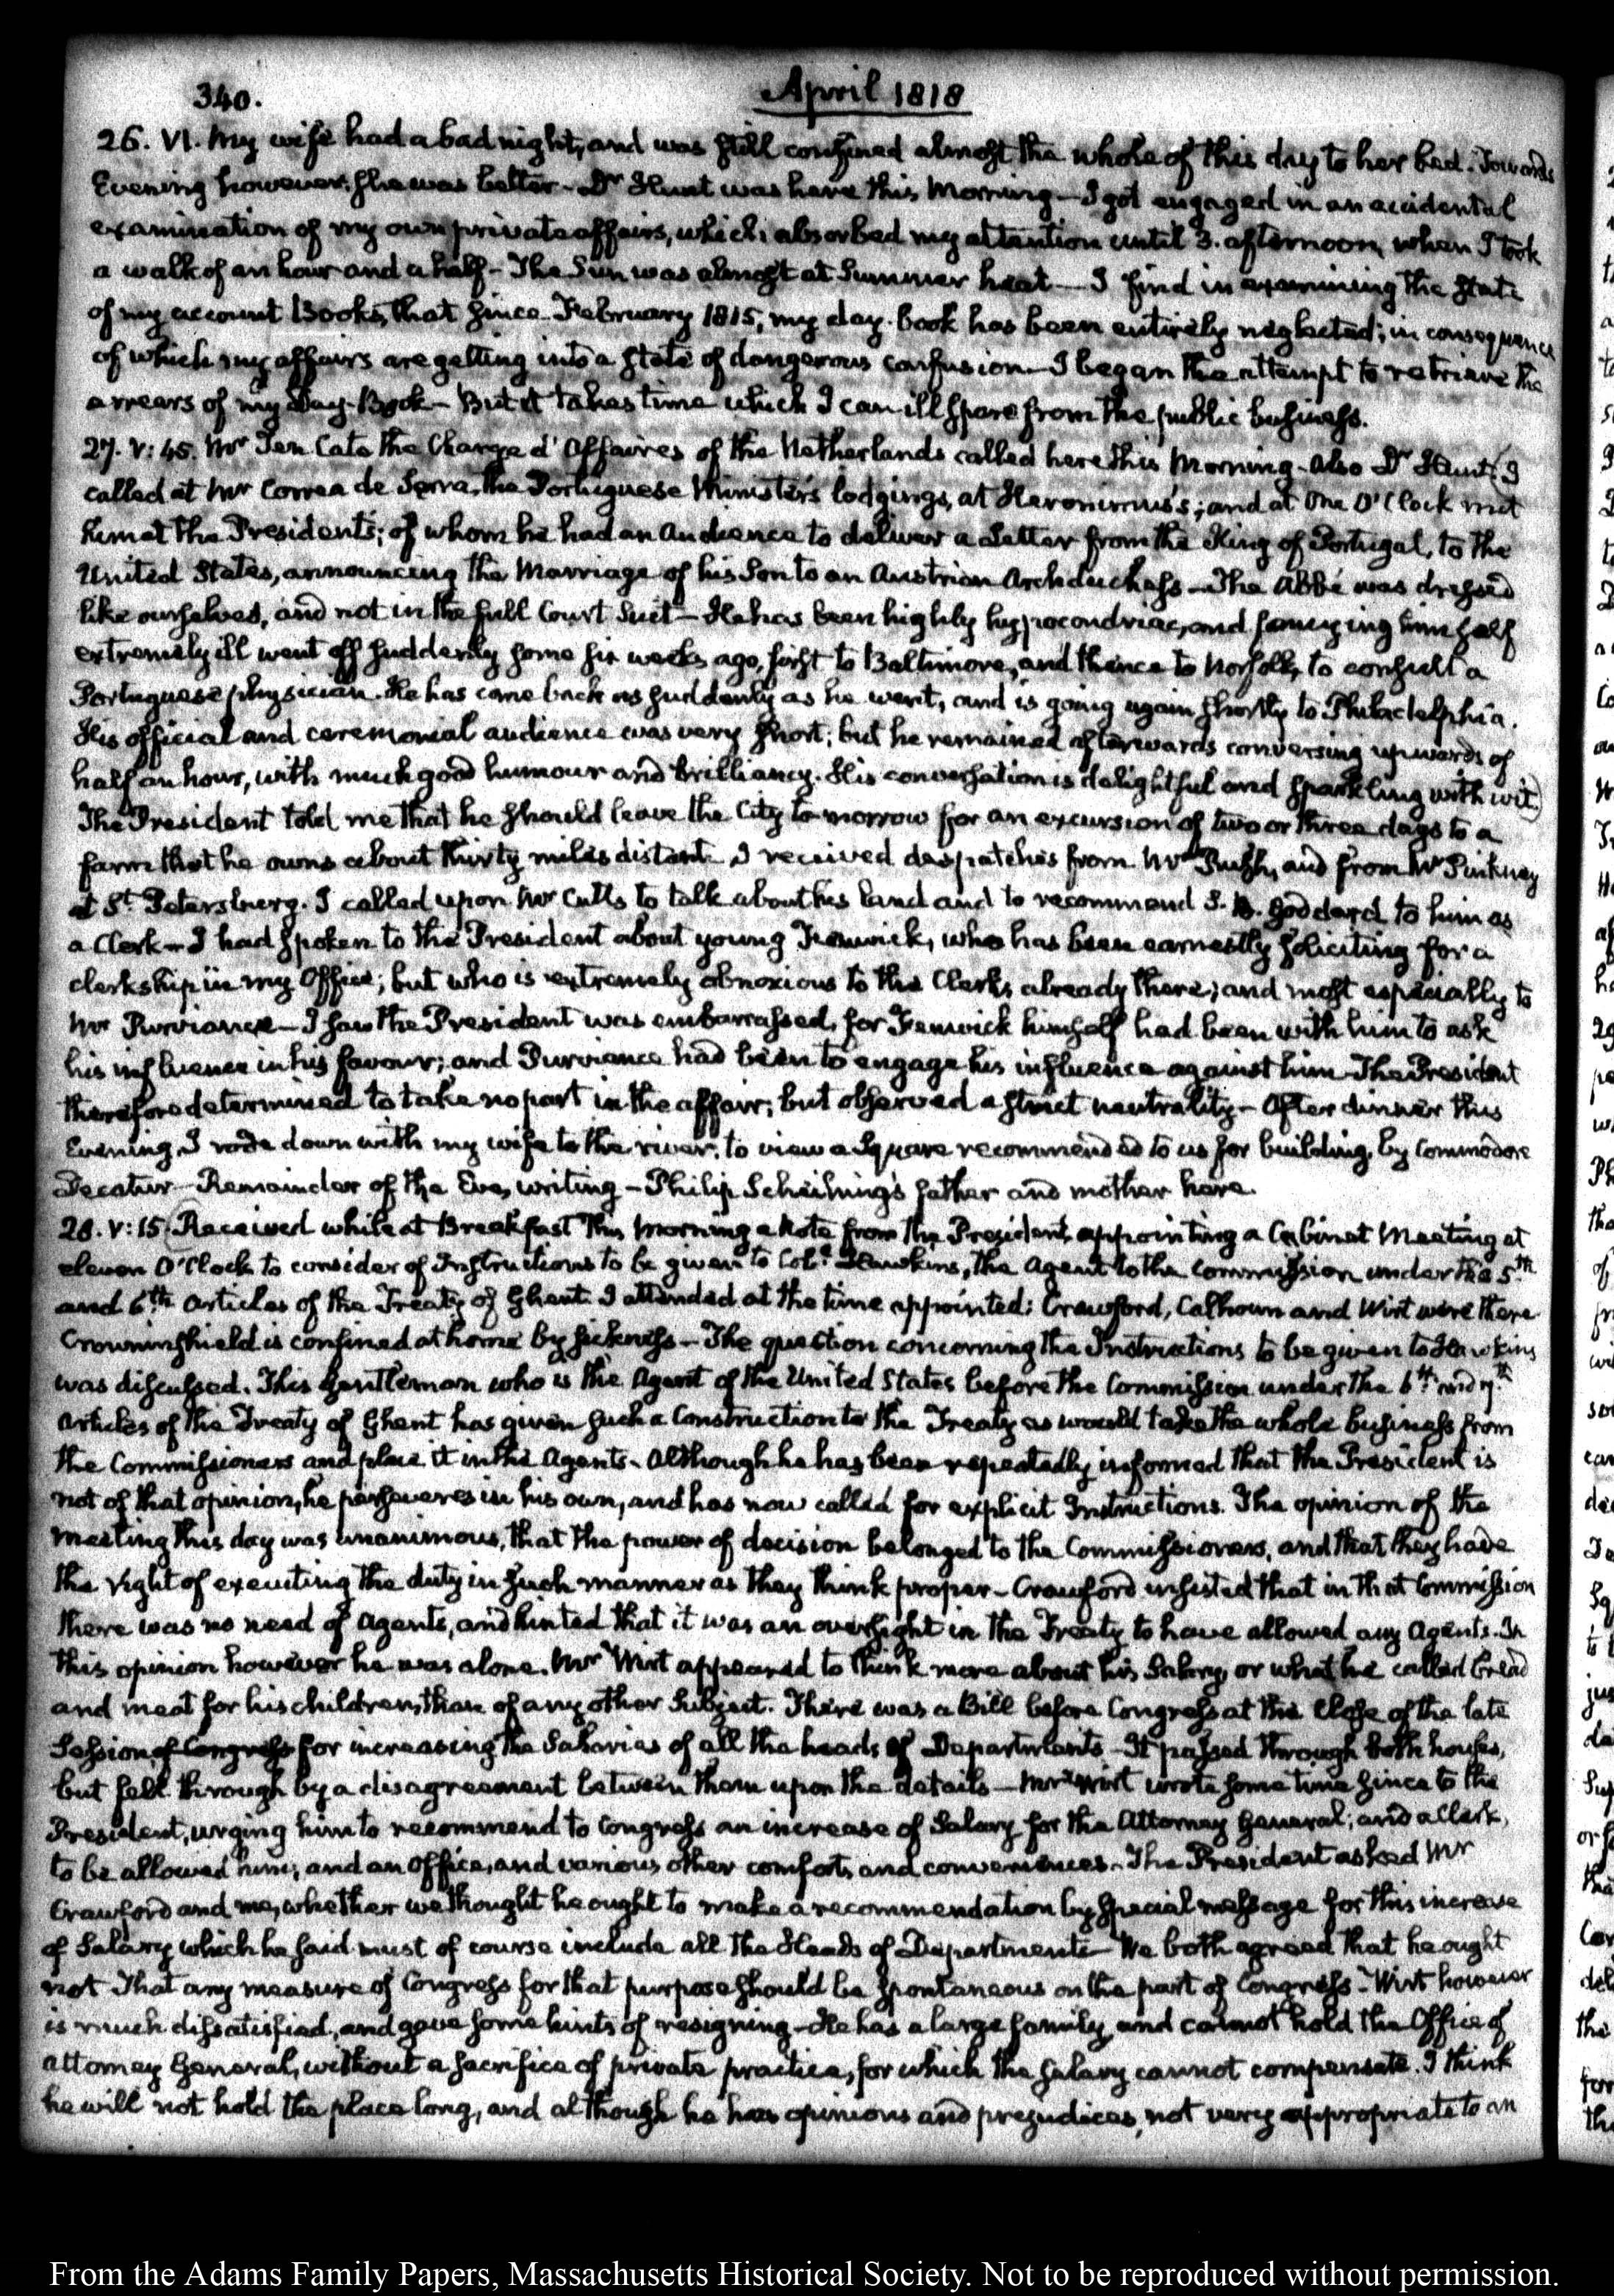 340.
April 1818
26. VI. My wife had a bad night, and was still confined almost the whole of this day to her bed. Towards
Evening however, she was better – Dr Hunt was here this Morning – I got engaged in an accidental
examination of my own private affairs, which absorbed my attention until 3. afternoon, when I took
a walk of an hour and a half – The Sun was almost at Summer heat – I find in examining the state
of my account Books, that since February 1815, my day-book has been entirely neglected; in consequence
of which my affairs are getting into a state of dangerous confusion – I began the attempt to retrieve the
arrears of my Day-Book – But it takes time which I can ill spare from the public business.
27. V:45. Mr Ten Cate the Chargé d'Affaires of the Netherlands called here this Morning – also Dr Hunt. (I
called at Mr Correa de Serra, the Portuguese Minister's lodgings, at Heronimus's; and at One O'Clock met
him at the President's; of whom he had an Audience to deliver a Letter from the King of Portugal, to the
United States, announcing the Marriage of his Son to an Austrian Archduchess – The Abbé was dressed
like ourselves, and not in the full Court Suit – He has been highly hypocondriac, and fancying himself
extremely ill went off suddenly some six weeks ago, first to Baltimore, and thence to Norfolk, to consult a
Portuguese physician. He has come back as suddenly as he went, and is going again shortly to Philadelphia.
His official and ceremonial audience was very short; but he remained afterwards conversing upwards of
half an hour, with much good humour and brilliancy. His conversation is delightful and sparkling with wit)
The President told me that he should leave the City to-morrow for an excursion of two or three days to a
farm that he owns about thirty miles distant. I received despatches from Mr Rush, and from Mr Pinkney
at St. Petersburg. I called upon Mr Cutts to talk about his land and to recommend S. B. Goddard to him as
a Clerk – I had spoken to the President about young Fenwick, who has been earnestly soliciting for a
clerkship in my Office; but who is extremely obnoxious to the Clerks already there; and most especially to
Mr Purviance – I saw the President was embarrassed, for Fenwick himself had been with him to ask
his influence in his favour; and Purviance had been to engage his influence against him – The President
therefore determined to take no part in the affair; but observed a strict neutrality – After dinner this
Evening, I rode down with my wife to the river, to view a Square recommended to us for building, by Commodore
Decatur – Remainder of the Eve, writing – Philip father and mother here.
28. V:15 (Received while at Breakfast this Morning a Note from the President, appointing a Cabinet Meeting at
eleven O'Clock to consider of Instructions to be given to Col. Hawkins, the Agent to the Commission under the 5th
and 6th articles of the Treaty of Ghent. I attended at the time appointed: Crawford, Calhoun and Wirt were there.
Crowninshield is confined at home by sickness – The question concerning the Instructions to be given to Hawkins
was discussed. This Gentleman who is the Agent of the United States before the Commission under the 6th and 7th
Articles of the Treaty of Ghent has given such a Construction to the Treaty as would take the whole business from
the Commissioners and place it in the Agents – Although he has been repeatedly informed that the President is
not of that opinion, he perseveres in his own, and has now called for explicit Instructions. The opinion of the
meeting this day was unanimous, that the power of decision belonged to the Commissioners, and that they have
the right of executing the duty in such manner as they think proper – Crawford insisted that in that Commission
there was no need of Agents, and hinted that it was an oversight in the Treaty to have allowed any Agents. In
this opinion however he was alone. Mr Wirt appeared to think more about his Salary, or what he called bread
and meat for his children, than of any other Subject. There was a Bill before Congress at the Close of the late
Session of Congress for increasing the Salaries of all the heads of Departments – It passed through both houses,
but fell through by a disagreement between them upon the details – Mr Wirt wrote some time since to the
President, urging him to recommend to Congress an increase of Salary for the Attorney General; and a Clerk,
to be allowed him; and an Office, and various other comforts and conveniences – The President asked Mr
Crawford and me, whether we thought he ought to make a recommendation by special message for this increase
of Salary which he said must of course include all the Heads of Departments – We both agreed that he ought
not – That any measure of Congress for that purpose should be spontaneous on the part of Congress – Wirt however
is much dissatisfied, and gave some hints of resigning – He has a large family and cannot hold the Office of
Attorney General, without a sacrifice of private practice, for which the Salary cannot compensate. I think
he will not hold the place long, and although he has opinions and prejudices, not very appropriate to an
From the Adams Family Papers, Massachusetts Historical Society. Not to be reproduced without permission.